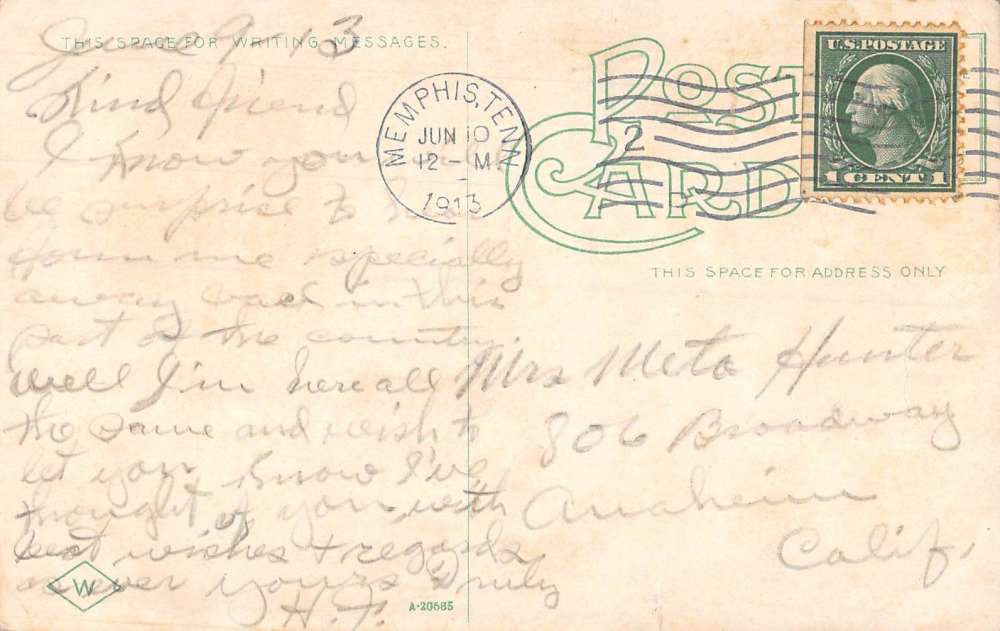 THIS SPACE FOR WRITING MESSAGES.
June 9 - 13
Kind Friend
I know you
be surprise to
from me especially
away back in this
part of the country.
Well I'm here all
the same and wish to
let you know I've
thought of you with
best wishes + regards
as ever yours truly
H. F.
W
A-20685
MEMPHIS, TENN
JUN 10
12 - M
1913
2
POST
CARD
U.S. POSTAGE
1 CENT 1
THIS SPACE FOR ADDRESS ONLY
Mrs Meta Hunter
806 Broadway
Anaheim
Calif.